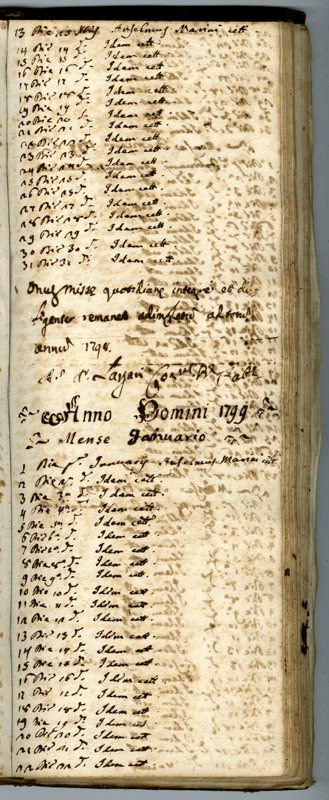 13 Die 13 Anselmus Marini cett.
14 Die 14 d. Idem cett.
15 Die 15 d. Idem cett.
16 Die 16 d. Idem cett.
17 Die 17 d. Idem cett.
18 Die 18 d. Idem cett.
19 Die 19 d. Idem cett.
20 Die 20 d. Idem cett.
21 Die 21 d. Idem cett.
22 Die 22 d. Idem cett.
23 Die 23 d. Idem cett.
24 Die 24 d. Idem cett.
25 Die 25 d. Idem cett.
26 Die 26 d. Idem cett.
27 Die 27 d. Idem cett.
28 Die 28 d. Idem cett.
29 Die 29 d. Idem cett.
30 Die 30 d. Idem cett.
31 Die 31 d. Idem cett.
Onus missæ quotidianæ integre et di-
ligenter remanet adimpletum ad totum
annum 1798.
Anno Domini 1799
Mense Januario
1 Die p.a Januarij Anselmus Marini cett
2 Die 2.a d. Idem cett.
3 Die 3.a d. Idem cett.
4 Die 4.a d. Idem cett.
5 Die 5.a d. Idem cett.
6 Die 6.a d. Idem cett.
7 Die 7.a d. Idem cett.
8 Die 8.a d. Idem cett.
9 Die 9.a d. Idem cett.
10 Die 10 d. Idem cett.
11 Die 11 d. Idem cett.
12 Die 12 d. Idem cett.
13 Die 13 d. Idem cett.
14 Die 14 d. Idem cett.
15 Die 15 d. Idem cett.
16 Die 16 d. Idem cett.
17 Die 17 d. Idem cett.
18 Die 18 d. Idem cett.
19 Die 19 d. Idem cett.
20 Die 20 d. Idem cett.
21 Die 21 d. Idem cett.
22 Die 22 d. Idem cett.